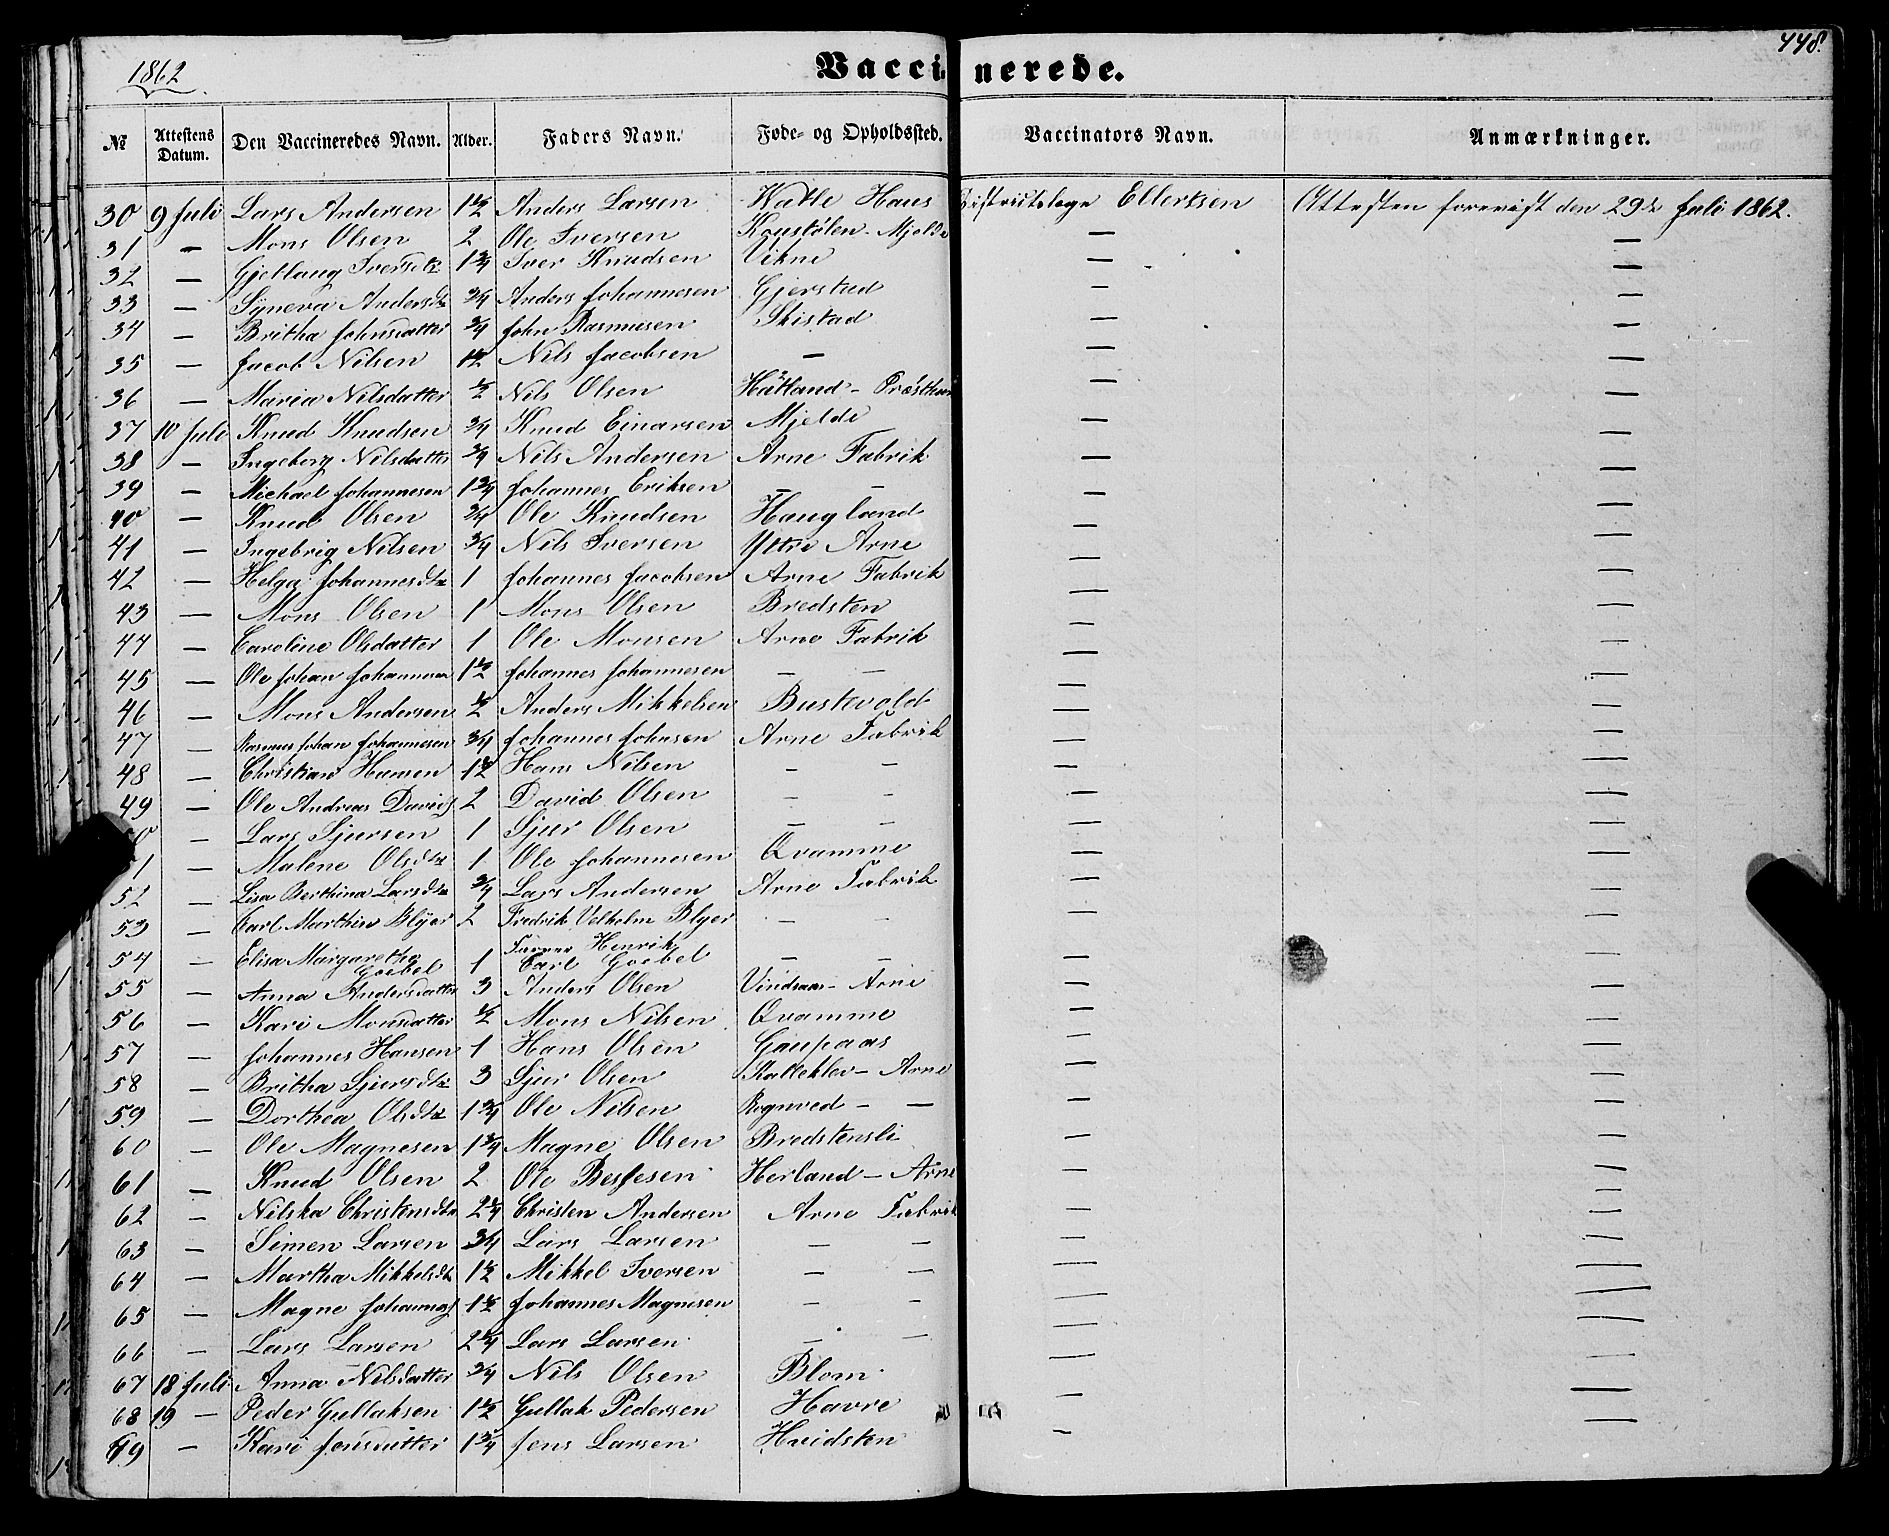 1862
Vaccinerede.
448.
№ Attestens Datum. Den Vaccineredes Navn. Alder. Faders Navn. Føde- og Opholdssted. Vaccinators Navn. Anmærkninger.
30 9 Juli Lars Andersen 1½ Anders Larsen Watle Haus Districtslæge Ellertsen Attesten forevist den 29de Juli 1862.
31 — Mons Olsen 2 Ole Iversen Koustølen - Mjelde — —
32 — Gjetlaug Iversdtr 1¾ Iver Knudsen Vikne — —
33 — Syneva Andersdtr ¾ Anders Johannesen Gjerstad — —
34 — Britha Johnsdatter ¾ John Rasmusen Skistad — —
35 — Jacob Nilsen 1½ Nils Jacobsen — — —
36 — Maria Nilsdatter ½ Nils Olsen Hätland - — —
37 10 Juli Knud Knudsen ¾ Knud Einarsen Mjelde — —
38 — Ingeborg Nilsdatter ¾ Nils Andersen Arne Fabrik — —
39 — Michael Johannesen 1¾ Johannes Eriksen — — — —
40 — Knud Olsen ¾ Ole Knudsen Haugland — —
41 — Ingebrig Nilsen ¾ Nils Iversen Ytre Arne — —
42 — Helga Johannesdtr 1 Johannes Jacobsen Arne Fabrik — —
43 — Mons Olsen 1 Mons Olsen Bredsten — —
44 — Caroline Olsdatter 1 Ole Monsen Arne Fabrik — —
45 — Ole Johan Johannesen 1½ Johannes Johannesen — — — —
46 — Mons Andersen ½ Anders Mikkelsen Bustevold — —
47 — Rasmus Johan Johannesen ¾ Johannes Johnsen Arne Fabrik — —
48 — Christian Hansen 1½ Hans Nilsen — — — —
49 — Ole Andreas Davids 2 David Olsen — — — —
50 — Lars Sjursen 1 Sjur Olsen — — — —
51 — Malene Olsdtr 1 Ole Johannesen Qvamme — —
52 — Lisa Berthina Larsdtr ¾ Lars Andersen Arne Fabrik — —
53 — Carl Marthin Blyer 2 Fredrik Velhelm Blyer — — — —
54 — Elisa Margaretha Goebel 1 Henrik Carl Goebel — — — —
55 — Anna Andersdatter 3 Anders Olsen Vindsaas - Arne — —
56 — Kari Monsdatter ½ Mons Nilsen Qvamme — —
57 — Johannes Hansen 1 Hans Olsen Gaupaas — —
58 — Britha Sjursdtr 3 Sjur Olsen Kalleklev - Arne — —
59 — Dorthea Olsdtr 1¾ Ole Nilsen Rognved - — — —
60 — Ole Magnesen 1¾ Magne Olsen Bredstensli — —
61 — Knud Olsen 2 Ole Besfesen Herland - Arne — —
62 — Nilska Christensdtr 2¼ Christen Andersen Arne Fabrik — —
63 — Simen Larsen ¾ Lars Larsen — — — —
64 — Martha Mikkelsdtr 1½ Mikkel Iversen — — — —
65 — Magne Johannes 1½ Johannes Magnesen — — — —
66 — Lars Larsen 2¼ Lars Larsen — — — —
67 18 Juli Anna Nilsdatter ¾ Nils Olsen Blom — —
68 19 — Peder Gullaksen 1½ Gullak Pedersen Havre — —
69 — Kari Jensdatter 1¾ Jens Larsen Hvidsten — —